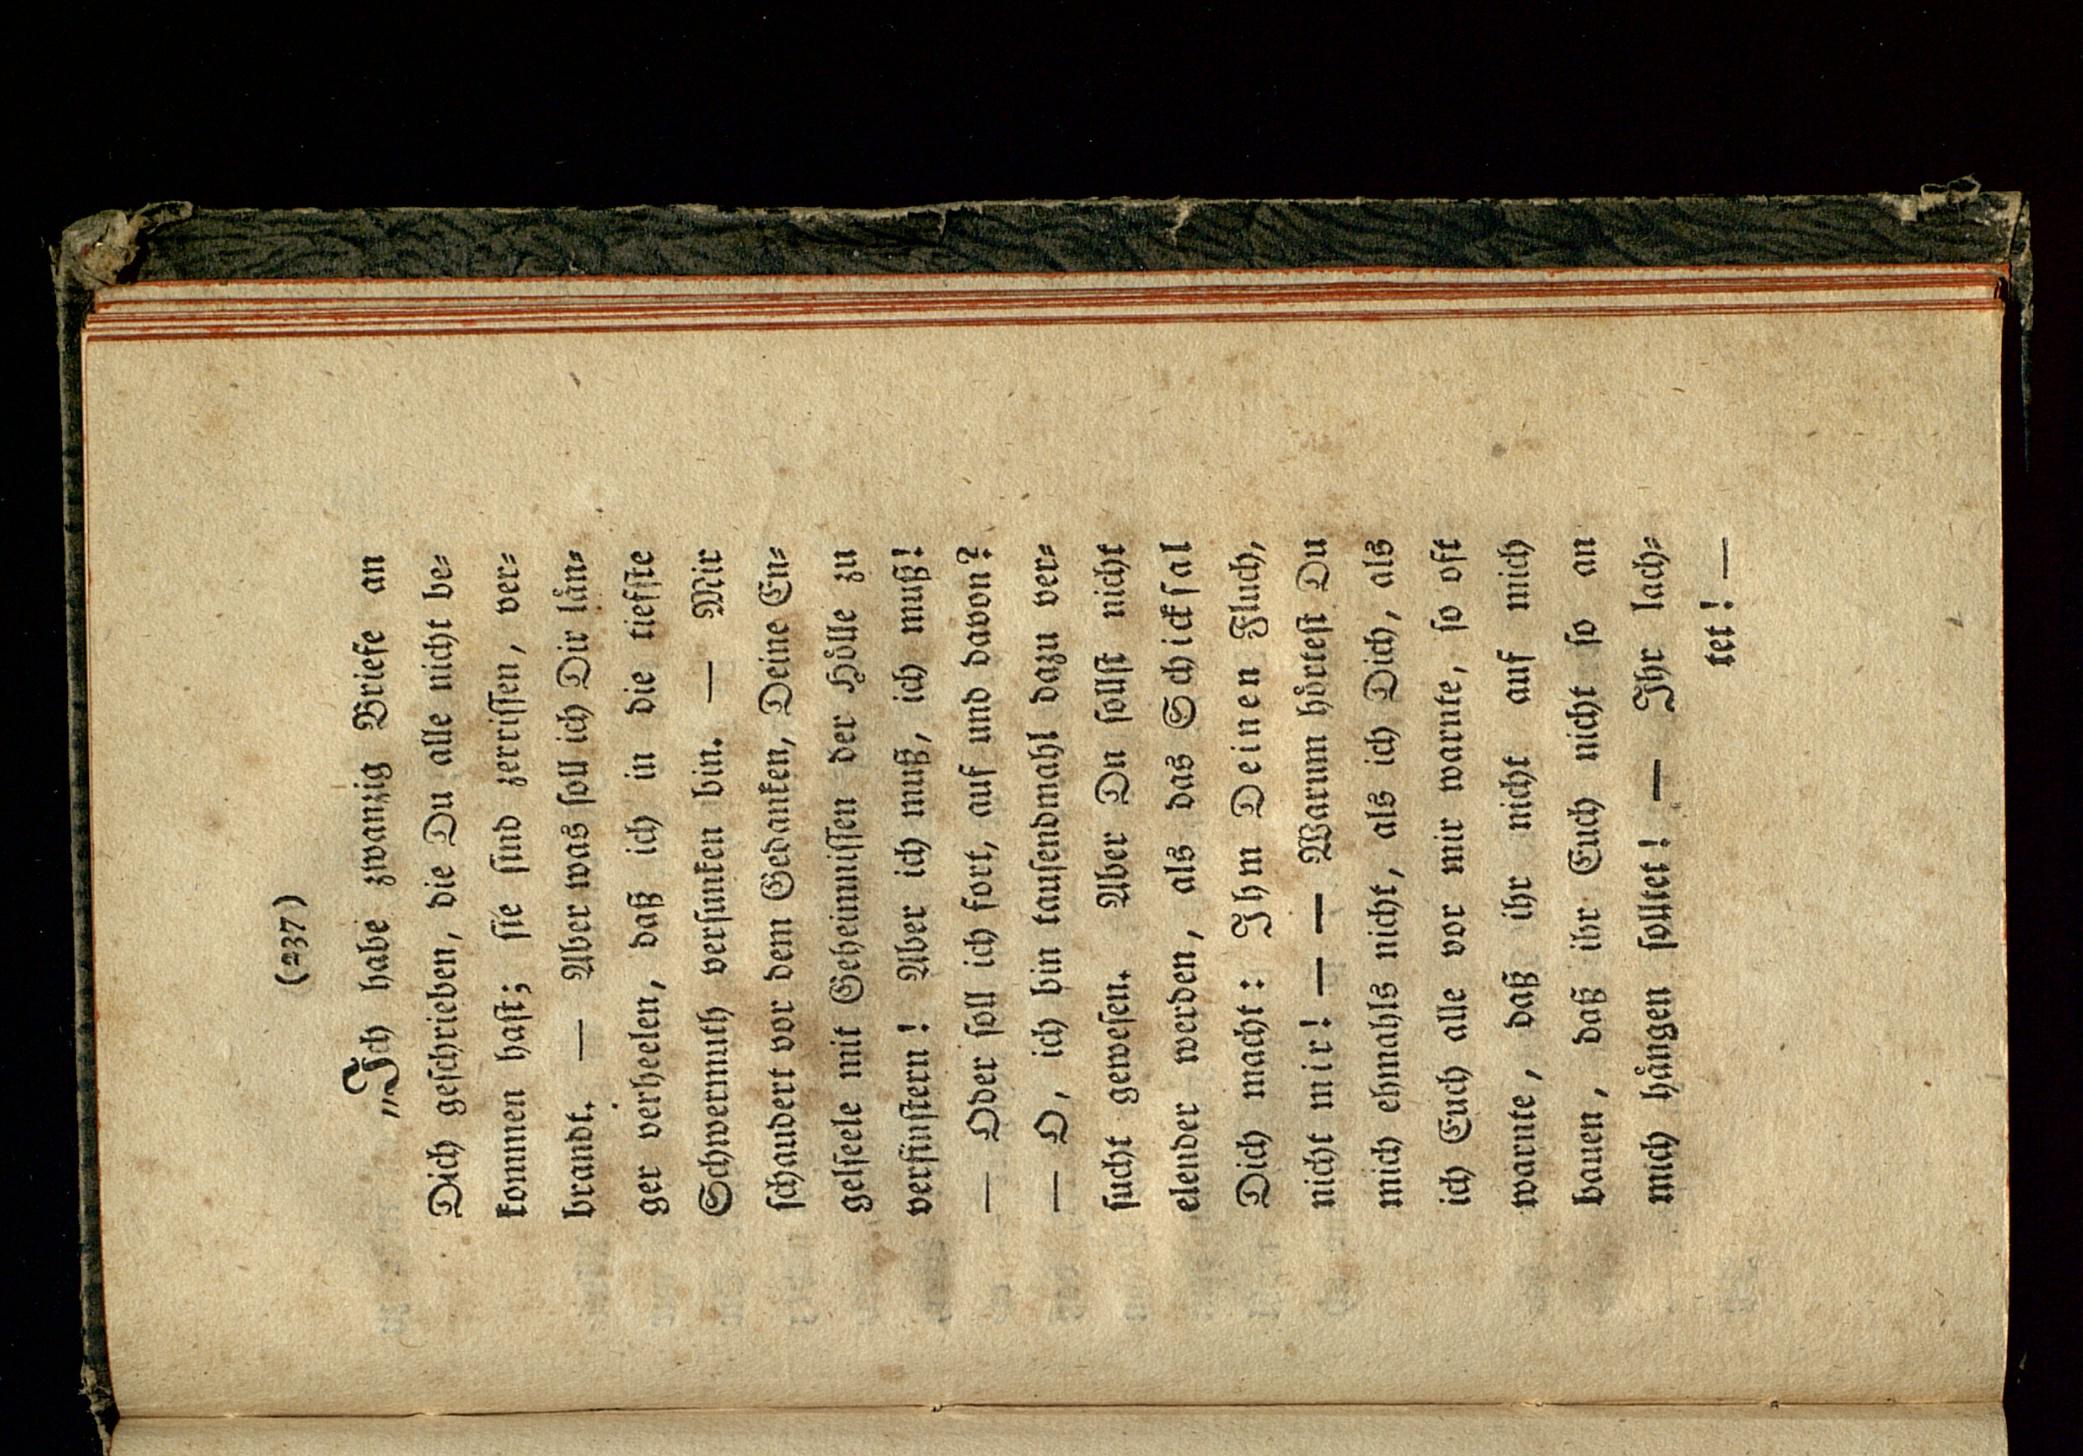 (237)
„Ich habe zwanzig Briefe an
Dich geſchrieben, die Du alle nicht be⸗
kommen haſt; ſie ſind zerriſſen, ver⸗
brandt. — Aber was ſoll ich Dir laͤn⸗
ger verheelen, daß ich in die tiefſte
Schwermuth verſunken bin. — Mir
ſchaudert vor dem Gedanken, Deine En⸗
gelſeele mit Geheimniſſen der Hoͤlle zu
verfinſtern! Aber ich muß, ich muß!
— Oder ſoll ich fort, auf und davon?
— O, ich bin tauſendmahl dazu ver⸗
ſucht geweſen. Aber Du ſollſt nicht
elender werden, als das Schickſal
Dich macht: Ihm Deinen Fluch,
nicht mir! — — Warum hoͤrteſt Du
mich ehmahls nicht, als ich Dich, als
ich Euch alle vor mir warnte, ſo oft
warnte, daß ihr nicht auf mich
bauen, daß ihr Euch nicht ſo an
mich haͤngen ſolltet! — Ihr lach⸗
tet! —